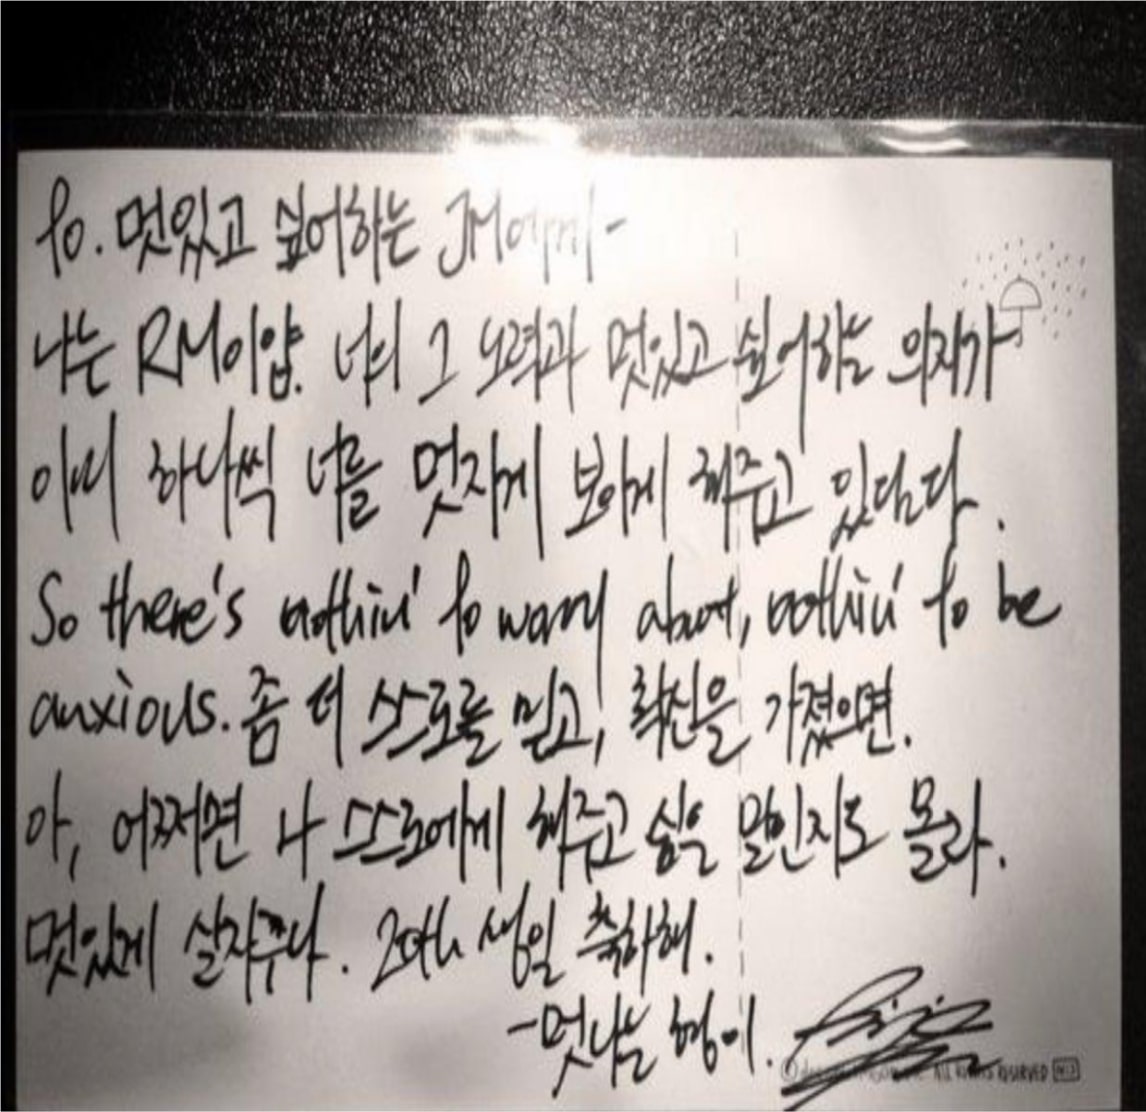 To. 멋있고 싶어하는 JM
나는 RM이얍. 너의 그 노력과 멋있고 싶어하는 의지가
이미 하나씩 너를 멋지게 보이게 해주고 있단다.
So there's nothin' to worry about, nothin' to be
anxious. 좀 더 스스로를 믿고, 확신을 가졌으면.
아, 어쩌면 나 스스로에게 해주고 싶은 말인지도 몰라.
멋있게 살자꾸나. 20th 생일 축하해.
-멋나는 형이.
ALL RIGHTS RESERVED